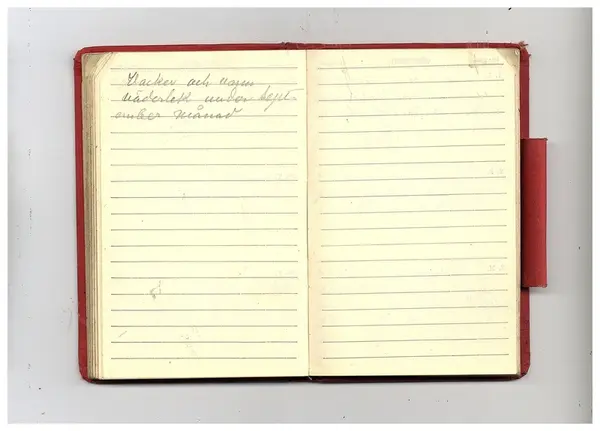 Vacker och varm
väderlek under Sept
ember månad